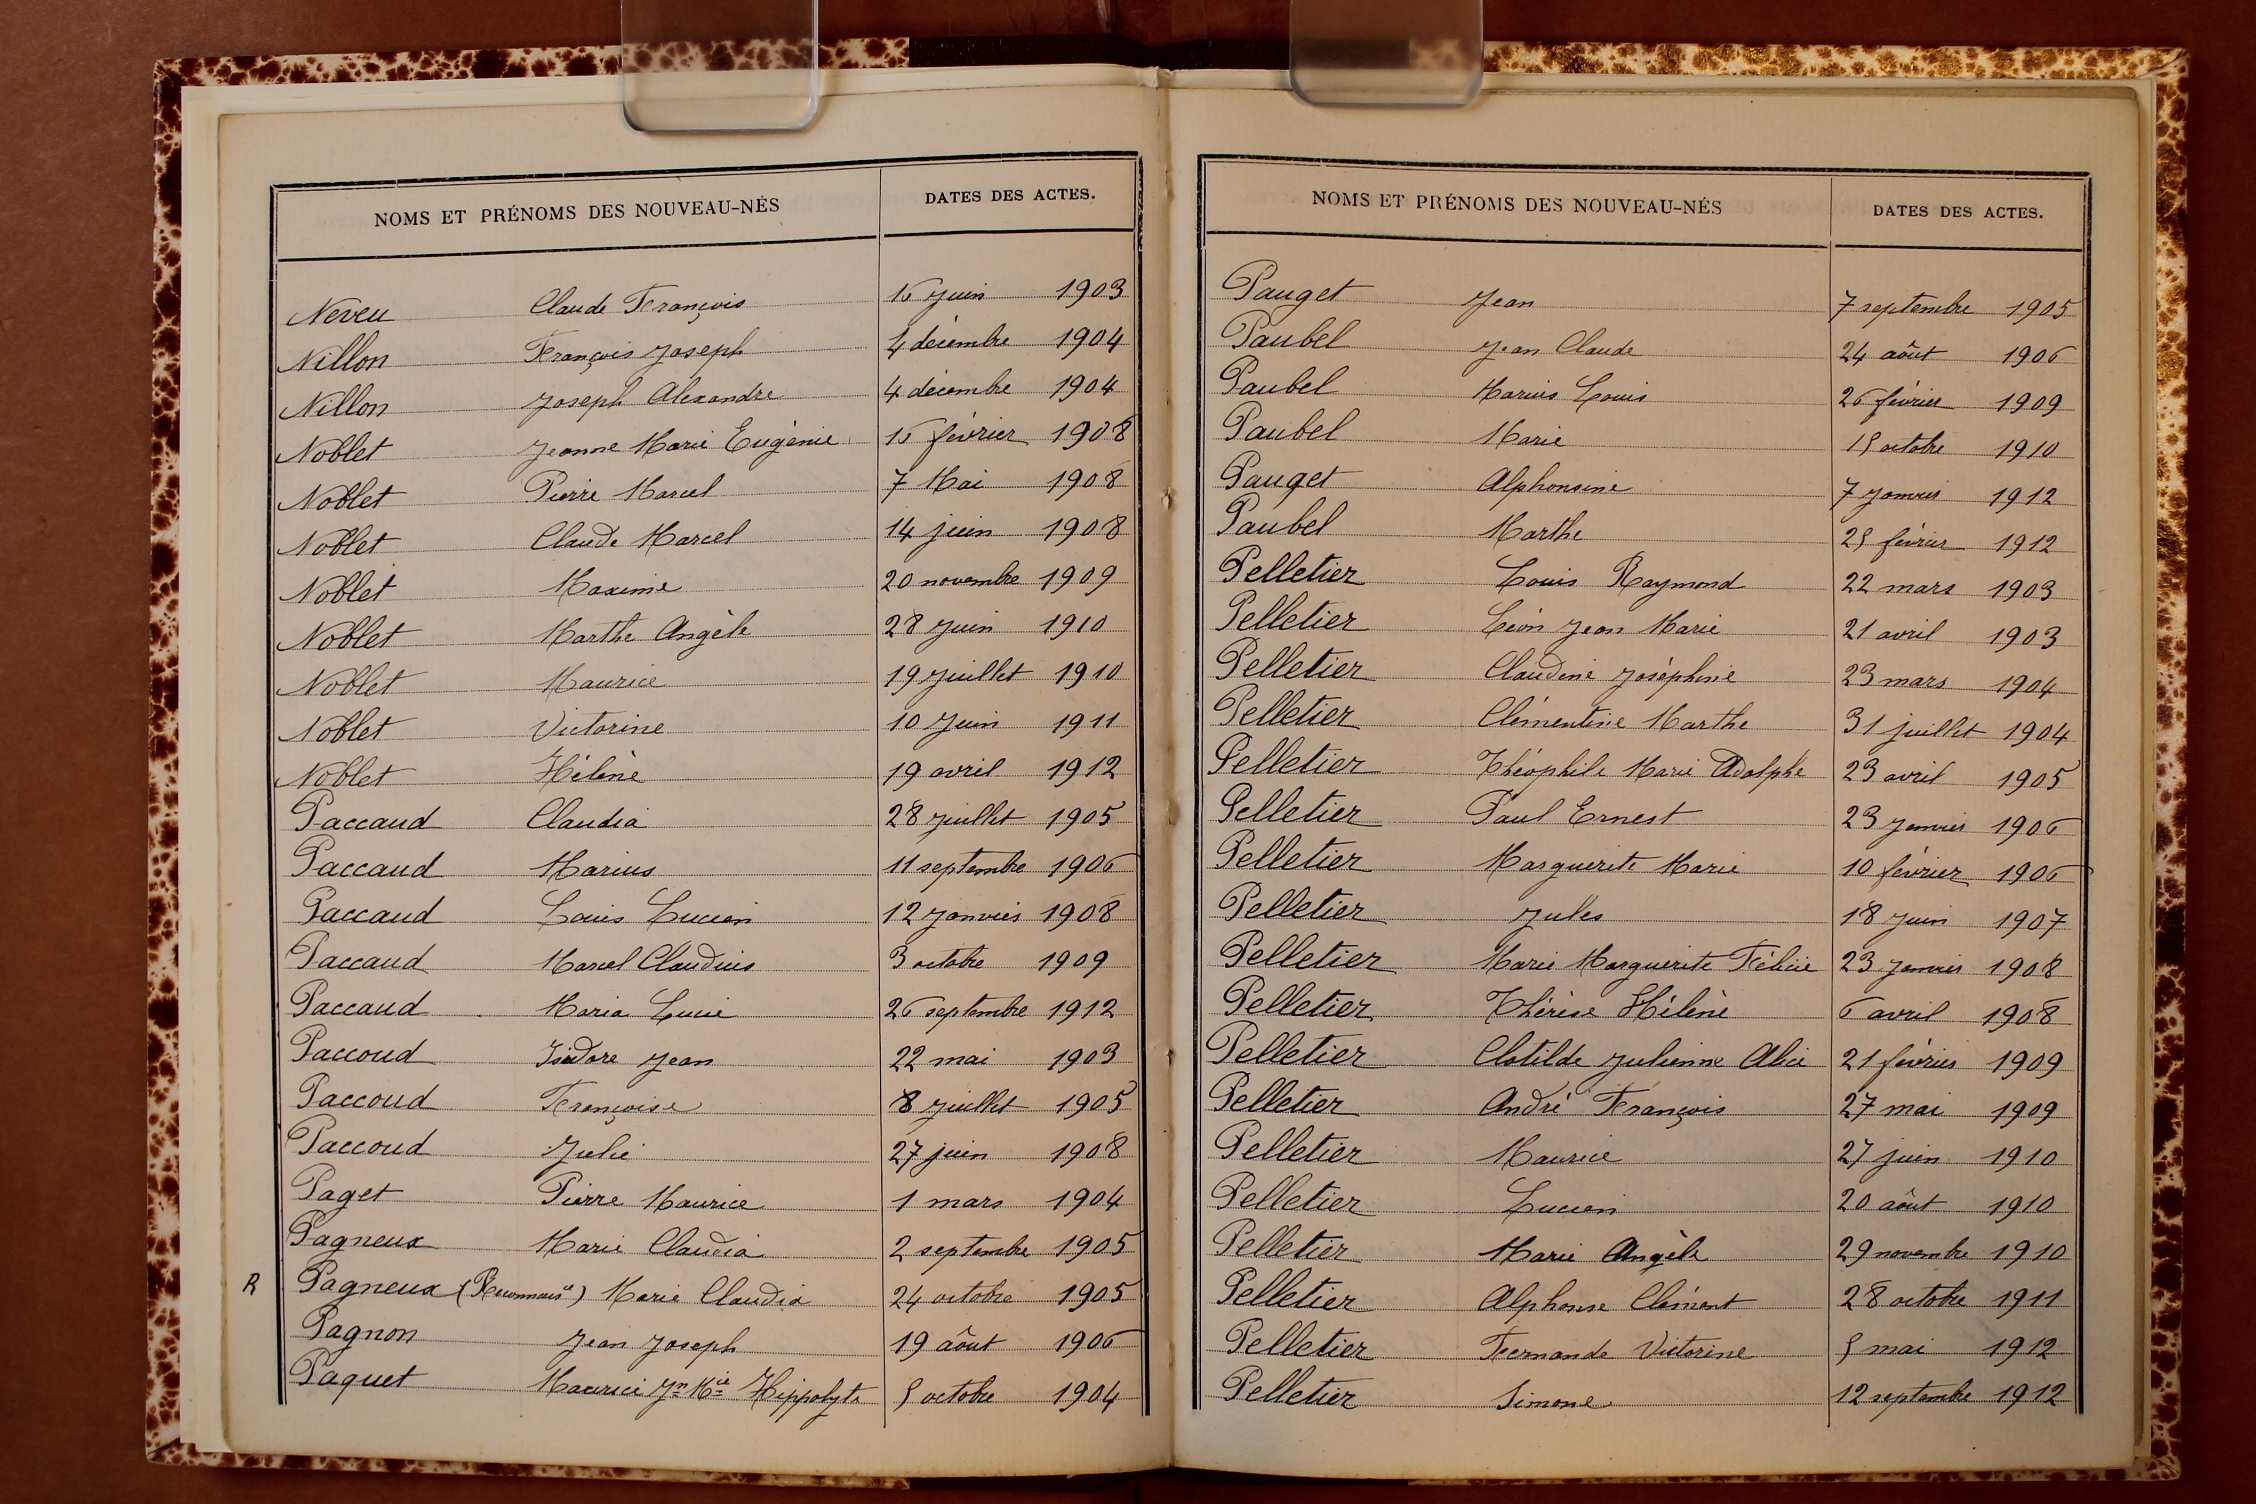 NOMS ET PRÉNOMS DES NOUVEAU-NÉS DATES DES ACTES.
Neveu Claude François 16 juin 1903
Nillon François Joseph 4 décembre 1904
Nillon Joseph Alexandre 4 décembre 1904
Noblet Jeanne Marie Eugénie 16 février 1908
Noblet Pierre Marcel 7 Mai 1908
Noblet Claude Marcel 14 juin 1908
Noblet Maxime 20 novembre 1909
Noblet Marthe Angèle 28 juin 1910
Noblet Maurice 19 juillet 1910
Noblet Victorine 10 juin 1911
Noblet Hélène 19 avril 1912
Paccaud Claudia 28 juillet 1905
Paccaud Marius 11 septembre 1906
Paccaud Louis Lucien 12 janvier 1908
Paccaud Marcel Claudius 3 octobre 1909
Paccaud Maria Lucie 26 septembre 1912
Paccoud Isidore Jean 22 mai 1903
Paccoud Françoise 8 juillet 1905
Paccoud Julie 27 juin 1908
Paget Pierre Maurice 1 mars 1904
Pagneux Marie Claudia 2 septembre 1905
R Pagneux (Reconnais ce) Marie Claudia 24 octobre 1905
Pagnon Jean Joseph 19 aôut 1906
Paquet Maurice Jn Mie Hippolyte 5 octobre 1904
NOMS ET PRÉNOMS DES NOUVEAU-NÉS DATES DES ACTES.
Pauget Jean 7 septembre 1905
Paubel Jean Claude 24 aôut 1906
Paubel Marius Louis 26 février 1909
Paubel Marie 15 octobre 1910
Pauget Alphonsine 7 janvier 1912
Paubel Marthe 25 février 1912
Pelletier Louis Raymond 22 mars 1903
Pelletier Léon Jean Marie 21 avril 1903
Pelletier Claudine Joséphine 23 mars 1904
Pelletier Clémentine Marthe 31 juillet 1904
Pelletier Théophile Marie Adolphe 23 avril 1905
Pelletier Paul Ernest 23 janvier 1906
Pelletier Marguerite Marie 10 février 1906
Pelletier Jules 18 juin 1907
Pelletier Marie Marguerite Félicie 23 janvier 1908
Pelletier Thérèse Hélène 6 avril 1908
Pelletier Clotilde Julienne Alice 21 février 1909
Pelletier André François 27 mai 1909
Pelletier Maurice 27 juin 1910
Pelletier Lucien 20 aôut 1910
Pelletier Marie Angèle 29 novembre 1910
Pelletier Alphonse Clément 28 octobre 1911
Pelletier Fernande Victorine 5 mai 1912
Pelletier Simone 12 septembre 1912